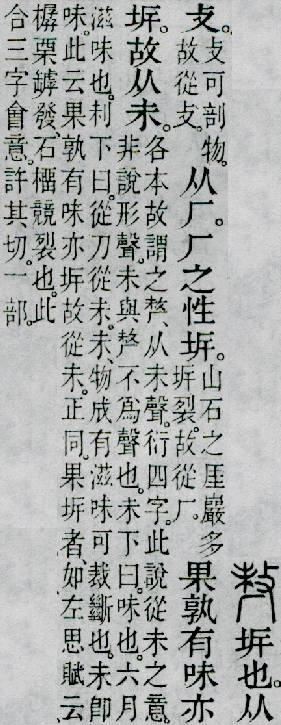 𠩺坼也。从
攴。攴可剖物。故從攴。从厂。厂之性坼。山石之厓巖多坼裂。故從厂。果孰有味亦
坼。故从未。各本故謂之𠩺、从未聲。衍四字。此說從未之意。非說形聲。未與𠩺不爲聲也。未下曰。味也。六月
滋味也。利下曰。從刀從未。未、物成有滋味可裁斷也。未即
味。此云果孰有味亦坼故從未。正同。果坼者如左思賦云、
樼栗罅發、石橊競裂也。此
合三字會意。許其切。一部。